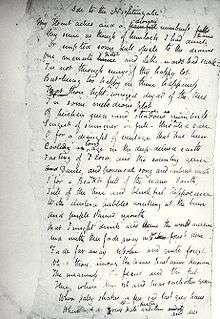 Ode to the Nightingale
My Heart aches and a drowsy numbness
My sense as though of hemlock I had drunk
Or emptied some dull opiate to the drains
One minute hence and Lethe wards had sunk
Tis not through envy of thy happy lot
But being too happy in thine happiness
That thou light winged dryad of the trees
In some melodious plot
Of beechen green and shadows numberless
Singest of summer in full-throated ease
O for a draught of vintage that has been
Cooling an age in the deep delved earth
Tasting of Flora and the country green
And Dance, and provencal song and sunburnt mirth
O for a Beaker full of the warm South
Full of the true and blushful Hippocrene
With cluster'd bubbles winking at the brim
And purple stained mouth
That I might drink and leave the world unseen
And with thee fade away into the forest dim
Fade far away dissolve and quite forget
What thou among the leaves hast never known
The weariness the fever and the fret
Here, where men sit and hear each other groan
Where palsy shakes a few sad last grey hairs
Where youth grows pale and thin and